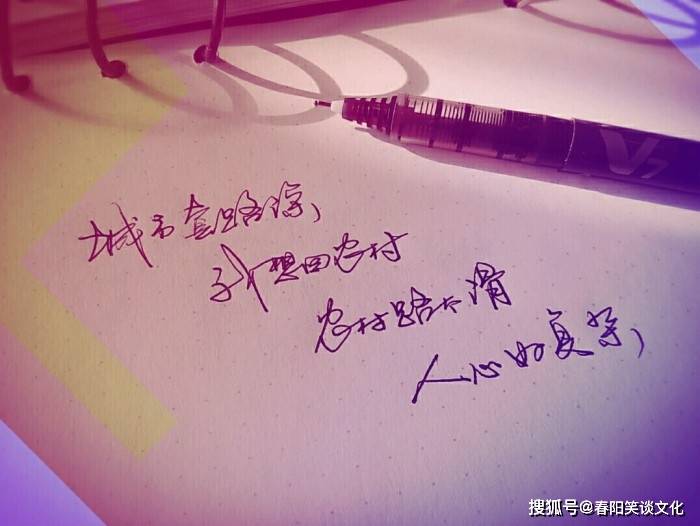 V7
城市套路深,
我想回农村
农村路太滑
人心好复杂,
搜狐号@春阳笑谈文化